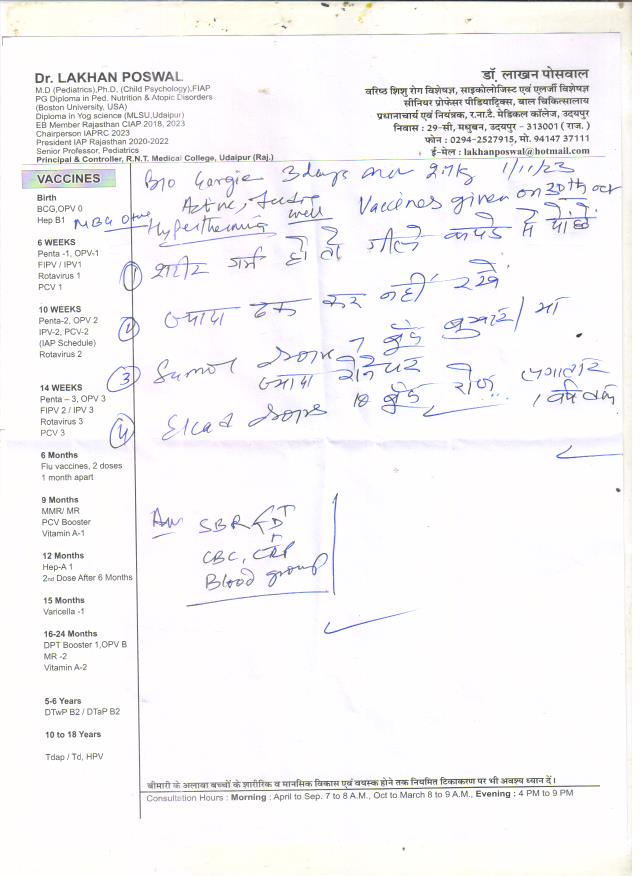 Dr. LAKHAN POSWAL
M.D (Pediatrics),Ph.D, (Child Psychology),FIAP
PG Diploma in Ped. Nutrition & Atopic Disorders
(Boston University, USA)
Diploma in Yog science (MLSU,Udaipur)
EB Member Rajasthan CIAP 2018, 2023
Chairperson IAPRC 2023
President IAP Rajasthan 2020-2022
Senior Professor, Pediatrics
Principal & Controller, R.N.T. Medical College, Udaipur (Raj.)
डॉ. लाखन पोसवाल
वरिष्ठ शिशु रोग विशेषज्ञ, साइकोलोजिस्ट एवं एलर्जी विशेषज्ञ
सीनियर प्रोफेसर पीडियाट्रिक्स, बाल चिकित्सालय
प्रधानाचार्य एवं नियंत्रक, र.ना.टै. मेडिकल कॉलेज, उदयपुर
निवास : 29-सी, मधुबन, उदयपुर - 313001 ( राज. )
फोन : 0294-2527915, मो. 94147 37111
ई-मेल : lakhanposwal@hotmail.com
VACCINES
Birth
BCG,OPV 0
Hep B1
6 WEEKS
Penta -1, OPV-1
FIPV / IPV1
Rotavirus 1
PCV 1
10 WEEKS
Penta-2, OPV 2
IPV-2, PCV-2
(IAP Schedule)
Rotavirus 2
14 WEEKS
Penta – 3, OPV 3
FIPV 2 / IPV 3
Rotavirus 3
PCV 3
6 Months
Flu vaccines, 2 doses
1 month apart
9 Months
MMR/ MR
PCV Booster
Vitamin A-1
12 Months
Hep-A 1
2nd Dose After 6 Months
15 Months
Varicella -1
16-24 Months
DPT Booster 1,OPV B
MR -2
Vitamin A-2
5-6 Years
DTwP B2 / DTaP B2
10 to 18 Years
Tdap / Td, HPV
B/o Gargie 3days 2.7kg 1/11/23
Active, feeding well Vaccines given on 30th oct
MBG O+ve Hyperthermia
① शरीर गर्म हो तो गीले कपडे से पोछे
② ज्यादा ढक कर नहीं रखे
③ Sumol drops 7 बूँद बुखार/ या
ज्यादा रोने पर
④ drops 10 बूँद रोज लगातार 1 वर्ष तक
Adv SBR T D I
CBC, CRP
Blood group
बीमारी के अलावा बच्चों के शारीरिक व मानसिक विकास एवं वयस्क होने तक नियमित टिकाकरण पर भी अवश्य ध्यान दें।
Consultation Hours : Morning : April to Sep. 7 to 8 A.M., Oct to March 8 to 9 A.M., Evening : 4 PM to 9 PM